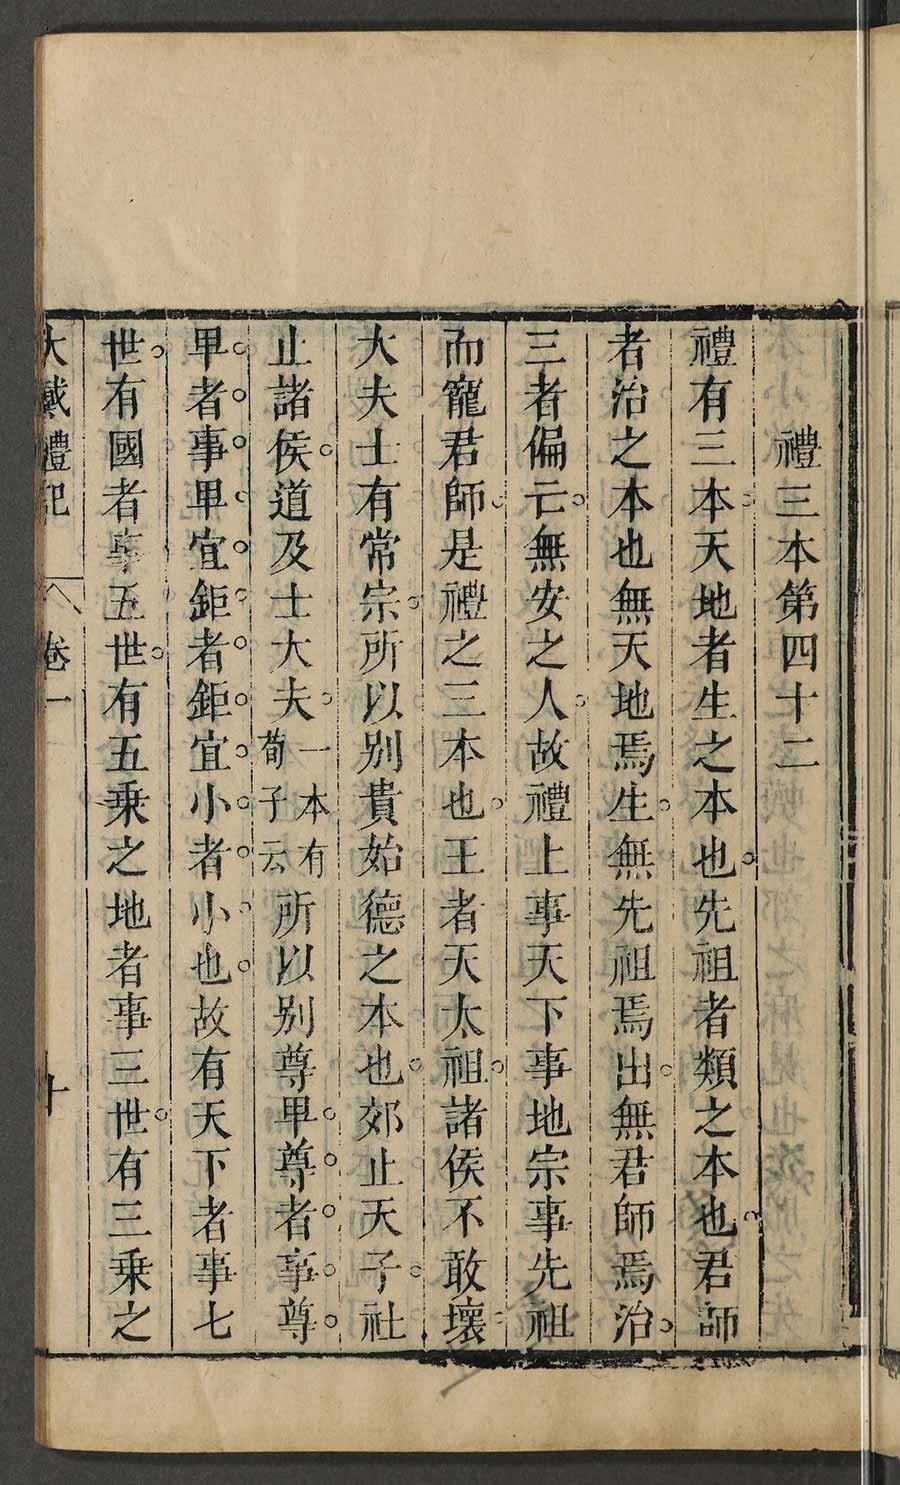 禮三本第四十二
禮有三本天地者生之本也。先祖者類之本也。君師
者治之本也無天地焉生。無先祖焉出。無君師焉治。
三者偏亡。無安之人。故禮上事天下事地宗事先祖
而寵君師。是禮之三本也。王者天太祖。諸侯不敢壞
大夫士有常宗。所以別貴始德之本也。郊止天子。社
止諸侯。道及士大夫。一本有荀子云所以別尊卑。尊。者。事。尊。
卑。者。事。卑。宜。鉅。者。鉅。宜。小。者。小。也。故有天下者事七
世。有國者事五世。有五乘之地者事三世。有三乘之
大戴禮記 卷一 十